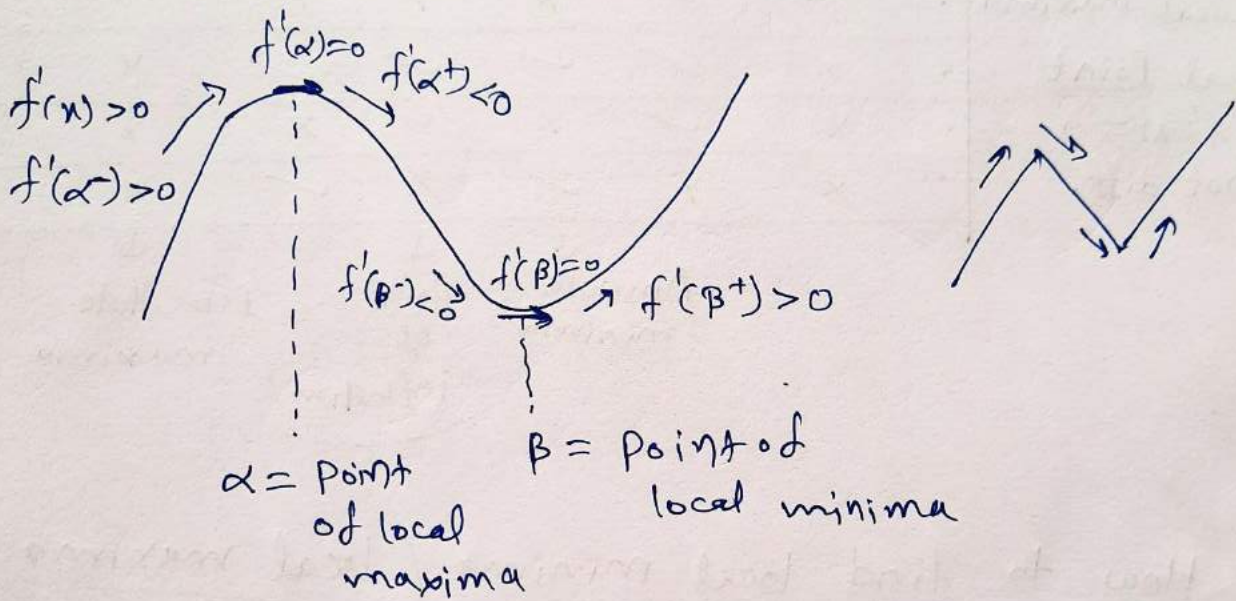 f'(α)=0
f'(α⁺)<0
f'(x)>0
f'(α⁻)>0
f'(β⁻)<0
f'(β)=0
f'(β⁺)>0
α = Point
of local
maxima
β = Point of
local minima